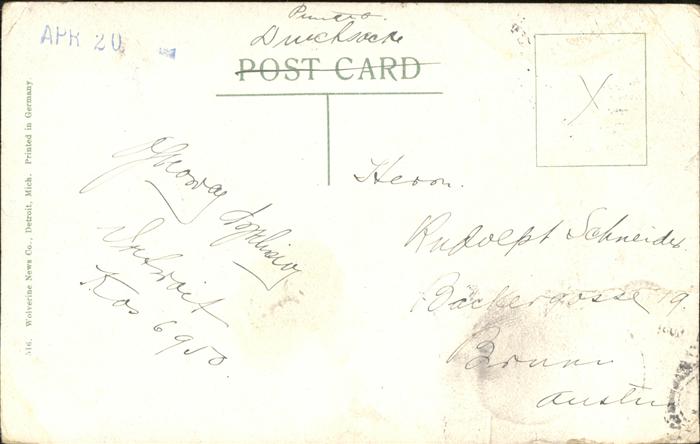 APR 20
Drucksache
POST CARD
316. Wolverine News Co., Detroit, Mich. Printed in Germany.
Detroit
Kos 6950.
Herrn.
Rudolph Schneider
Bäckergasse 19.
Brunn
Austria